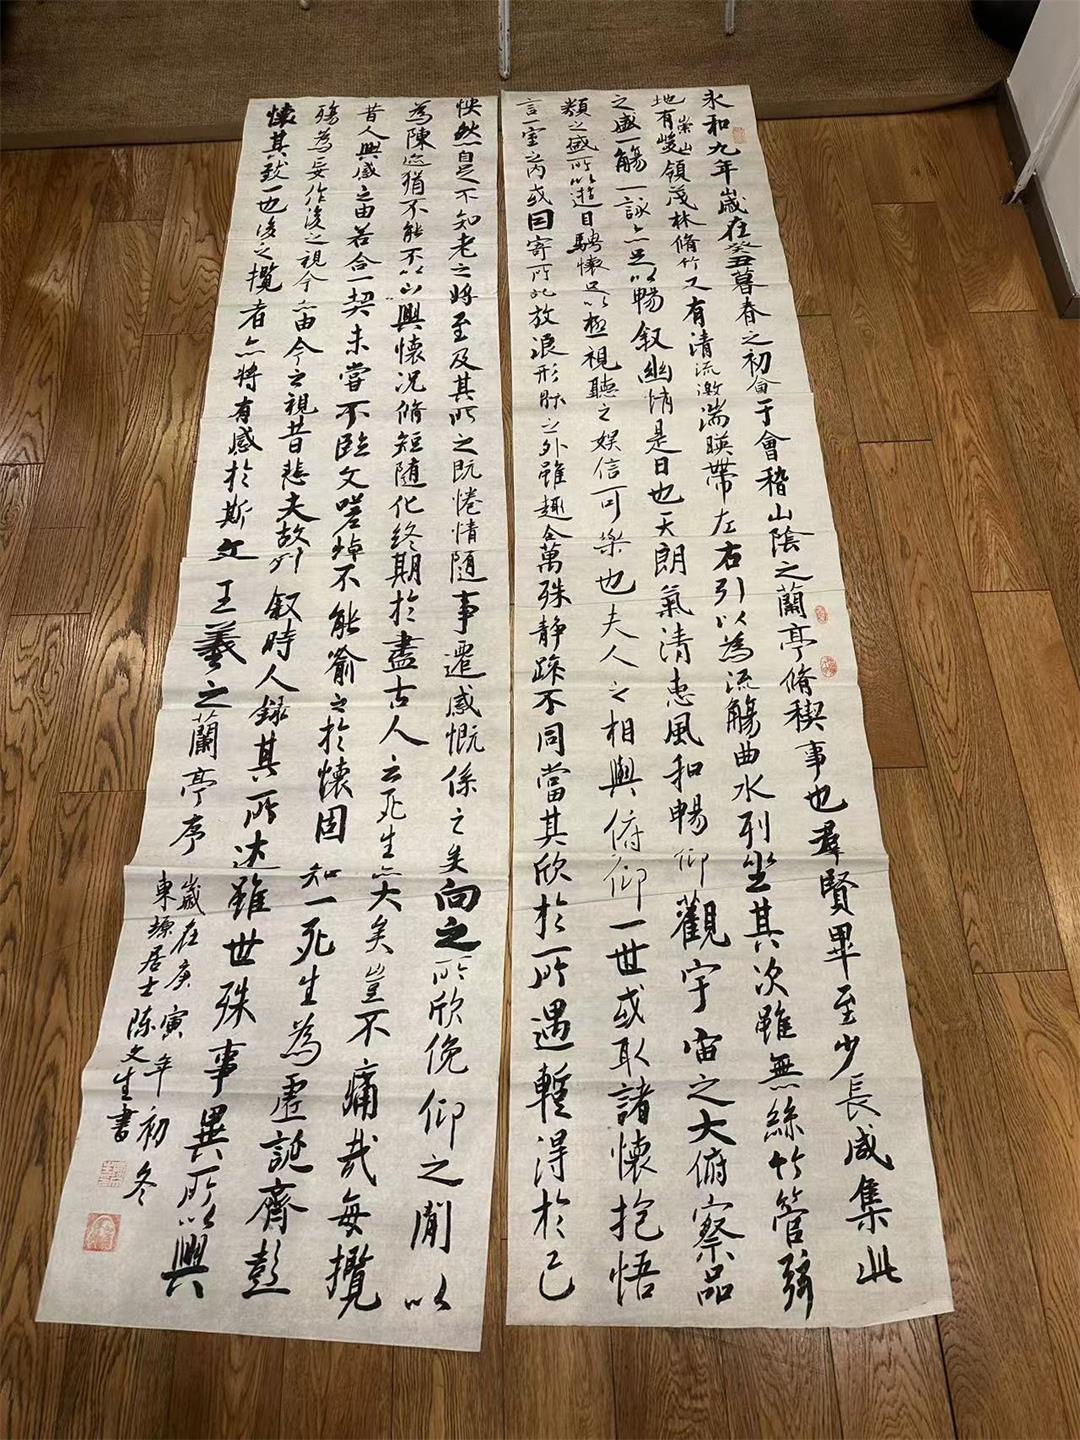 永和九年歲在癸丑暮春之初會于會稽山陰之蘭亭脩稧事也羣賢畢至少長咸集此
地有崇山峻領茂林脩竹又有清流激湍暎帶左右引以為流觴曲水列坐其次雖無絲竹管弦
之盛一觴一詠亦足以暢叙幽情是日也天朗氣清惠風和暢仰觀宇宙之大俯察品
類之盛所以遊目騁懷足以極視聽之娛信可樂也夫人之相與俯仰一世或取諸懷抱悟
言一室之內或因寄所託放浪形骸之外雖趣舍萬殊靜躁不同當其欣於所遇蹔得於己
怏然自足不知老之將至及其所之既惓情隨事遷感慨係之矣向之所欣俛仰之閒以
為陳迹猶不能不以之興懷況脩短隨化終期於盡古人云死生亦大矣豈不痛哉每攬
昔人興感之由若合一契未嘗不臨文嗟悼不能喻之於懷固知一死生為虛誕齊彭
殤為妄作後之視今亦由今之視昔悲夫故列叙時人錄其所述雖世殊事異所以興
懷其致一也後之攬者亦將有感於斯文王羲之蘭亭序
歲在庚寅年初冬
東塬居士陈文生書